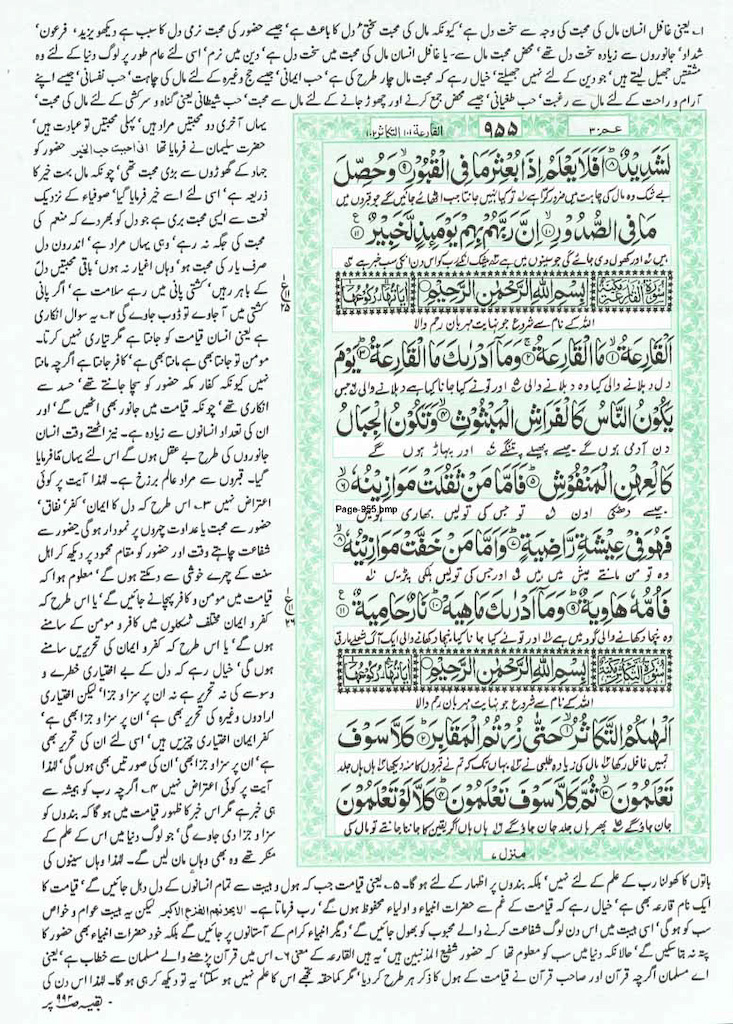 ۱۔ یعنی غافل انسان مال کی محبت کی وجہ سے سخت دل ہے' کیونکہ مال کی محبت سختی دل کا باعث ہے' جیسے حضور کی محبت نرمی دل کا سبب ہے دیکھو یزید' فرعون'
شداد' جانوروں سے زیادہ سخت دل تھے' محض محبت مال سے۔ یا غافل انسان مال کی محبت میں سخت دل ہے' دین میں نرم' اسی لئے عام طور پر لوگ دنیا کے لئے وہ
مشقتیں جھیل لیتے ہیں' جو دین کے لئے نہیں جھیلتے' خیال رہے کہ محبت مال چار طرح کی ہے' حب ایمانی' جیسے حج وغیرہ کے لئے مال کی چاہت' حب نفسانی' جیسے اپنے
آرام و راحت کے لئے مال سے رغبت' حب طغیانی' جیسے محض جمع کرنے اور چھوڑ جانے کے لئے مال سے محبت' حب شیطانی یعنی گناہ و سرکشی کے لئے مال کی محبت'
یہاں آخری دو محبتیں مراد ہیں' پہلی محبتیں تو عبادت ہیں'
حضرت سلیمان نے فرمایا تھا انی احببت حب الخیر حضور کو
جہاد کے گھوڑوں سے بڑی محبت تھی' چونکہ مال بہت خیر کا
ذریعہ ہے' اسی لئے اسے خیر فرمایا گیا' صوفیاء کے نزدیک
نعمت سے ایسی محبت بری ہے جو دل کو بھر دے کہ منعم کی
محبت کی جگہ نہ رہے' وہی یہاں مراد ہے' اندرون دل
صرف یار کی محبت ہو' وہاں اغیار نہ ہوں' باقی محبتیں دل
کے باہر رہیں' کشتی پانی میں رہے سلامت ہے' اگر پانی
کشتی میں آ جاوے تو ڈوب جاوے گی ۲۔ یہ سوال انکاری
ہے یعنی انسان قیامت کو جانتا ہے مگر تیاری نہیں کرتا۔
مومن تو جانتا بھی ہے مانتا بھی ہے' کافر جانتا ہے اگرچہ مانتا
نہیں کیونکہ کفار مکہ حضور کو سچا جانتے تھے' حسد سے
انکاری تھے' چونکہ قیامت میں جانور بھی اٹھیں گے' اور
ان کی تعداد انسانوں سے زیادہ ہے۔ نیز اٹھتے وقت انسان
جانوروں کی طرح بے عقل ہوں گے اس لئے یہاں مَا فرمایا
گیا۔ قبروں سے مراد عالم برزخ ہے۔ لہٰذا آیت پر کوئی
اعتراض نہیں ۳۔ اس طرح کہ دل کا ایمان' کفر' نفاق'
حضور سے محبت یا عداوت چہروں پر نمودار ہو گی حضور سے
شفاعت چاہتے وقت اور حضور کو مقام محمود پر دیکھ کر اہل
سنت کے چہرے خوشی سے دمکتے ہوں گے' معلوم ہوا کہ
قیامت میں مومن و کافر پہچانے جائیں گے' یا اس طرح کہ
کفر و ایمان مختلف شکلوں میں کافر و مومن کے سامنے
ہوں گے' یا اس طرح کہ کفر و ایمان کی تحریریں سامنے
ہوں گی' خیال رہے کہ دل کے بے اختیاری خطرے و
وسوسے کی نہ تحریر ہے نہ ان پر سزا و جزا' لیکن اختیاری
ارادوں وغیرہ کی تحریر بھی ہے' ان پر سزا و جزا بھی ہے'
کفر ایمان اختیاری چیزیں ہیں' اسی لئے ان کی تحریر بھی
ہے' ان پر سزا و جزا بھی' ان کی صورتیں بھی ہوں گی' لہٰذا
آیت پر کوئی اعتراض نہیں ۴۔ اگرچہ رب کو ہمیشہ سے
ہی خبر ہے مگر اس خبر کا ظہور قیامت میں ہو گا کہ بندوں کو
سزا و جزا دی جاوے گی' جو لوگ دنیا میں اس کے علم کے
منکر تھے وہ بھی وہاں مان لیں گے۔ لہٰذا وہاں سینوں کی
عم ۳۰
۹۵۵
القارعۃ ۱۰۱ التکاثر ۱۰۲
لَشَدِيْدٌ ۸ اَفَلَا يَعْلَمُ اِذَا بُعْثِرَ مَا فِى الْقُبُوْرِ ۹ وَحُصِّلَ
بے شک وہ مال کی چاہت میں ضرور کرّا ہے تو کیا نہیں جانتا جب اٹھائے جائیں گے جو قبروں میں
مَا فِى الصُّدُوْرِ ۱۰ اِنَّ رَبَّهُمْ بِهِمْ يَوْمَئِذٍ لَّخَبِيْرٌ ۱۱
ہیں اور کھول دی جائے گی جو سینوں میں ہے بیشک انکے رب کو اس دن انکی سب خبر ہے
سورۃ القارعۃ مکیۃ
بِسْمِ اللّٰهِ الرَّحْمٰنِ الرَّحِيْمِ
اٰیاتہا ۱۱ رکوعہا ۱
اللہ کے نام سے شروع جو نہایت مہربان رحم والا
اَلْقَارِعَةُ ۱ مَا الْقَارِعَةُ ۲ وَمَاۤ اَدْرٰىكَ مَا الْقَارِعَةُ ۳ يَوْمَ
دل دہلانے والی کیا وہ دہلانے والی اور تونے کیا جانا کیا ہے دہلانے والی جس
يَكُوْنُ النَّاسُ كَالْفَرَاشِ الْمَبْثُوْثِ ۴ وَتَكُوْنُ الْجِبَالُ
دن آدمی ہوں گے جیسے پھیلے پتنگے اور پہاڑ ہوں گے
كَالْعِهْنِ الْمَنْفُوْشِ ۵ فَاَمَّا مَنْ ثَقُلَتْ مَوَازِيْنُهٗ ۶
جیسے دھنکی اون تو جس کی تولیں بھاری ہوئیں
Page-955.bmp
فَهُوَ فِىْ عِيْشَةٍ رَّاضِيَةٍ ۷ وَاَمَّا مَنْ خَفَّتْ مَوَازِيْنُهٗ ۸
وہ تو من مانتے عیش میں ہیں اور جس کی تولیں ہلکی پڑیں
فَاُمُّهٗ هَاوِيَةٌ ۹ وَمَاۤ اَدْرٰىكَ مَا هِيَهْ ۱۰ نَارٌ حَامِيَةٌ ۱۱
وہ نیچا دکھانے والی گود میں ہے اور تونے کیا جانا کیا نیچا دکھانے والی ایک آگ شعلے مارتی
سورۃ التکاثر مکیۃ
بِسْمِ اللّٰهِ الرَّحْمٰنِ الرَّحِيْمِ
اٰیاتہا ۸ رکوعہا ۱
اللہ کے نام سے شروع جو نہایت مہربان رحم والا
اَلْهٰىكُمُ التَّكَاثُرُ ۱ حَتّٰى زُرْتُمُ الْمَقَابِرَ ۲ كَلَّا سَوْفَ
تمہیں غافل رکھا مال کی زیادہ طلبی نے یہاں تک کہ تم نے قبروں کا منہ دیکھا ہاں ہاں جلد
تَعْلَمُوْنَ ۳ ثُمَّ كَلَّا سَوْفَ تَعْلَمُوْنَ ۴ كَلَّا لَوْ تَعْلَمُوْنَ
جان جاؤ گے پھر ہاں ہاں جلد جان جاؤ گے ہاں ہاں اگر یقین کا جاننا جانتے تو مال کی
منزل ۷
باتوں کا کھولنا رب کے علم کے لئے نہیں' بلکہ بندوں پر اظہار کے لئے ہو گا۔ ۵۔ یعنی قیامت جب کہ ہول و ہیبت سے تمام انسانوں کے دل دہل جائیں گے' قیامت کا
ایک نام قارعہ بھی ہے' خیال رہے کہ قیامت کے غم سے حضرات انبیاء و اولیاء محفوظ ہوں گے' رب فرماتا ہے۔ لا یحزنہم الفزع الاکبر لیکن یہ ہیبت عوام و خواص
سب کو ہو گی' اسی ہیبت میں اس دن لوگ شفاعت کرنے والے محبوب کو بھول جائیں گے' دیگر انبیاء کرام کے آستانوں پر جائیں گے بلکہ خود حضرات انبیاء بھی حضور کا
پتہ نہ بتا سکیں گے' حالانکہ دنیا میں سب کو معلوم تھا کہ حضور شفیع المذنبین ہیں' یہ ہیں القارعہ کے معنی ۶۔ اس میں قرآن پڑھنے والے مسلمان سے خطاب ہے' یعنی
اے مسلمان اگرچہ قرآن اور صاحب قرآن نے قیامت کے ہول کا ذکر ہر طرح کر دیا' مگر کماحقہ تجھے اس کا علم نہیں ہو سکتا' یہ تو دیکھ کر ہی ہو گا۔ لہٰذا اس دن کی
۔ بقیہ صـ ۹۹۲ پر